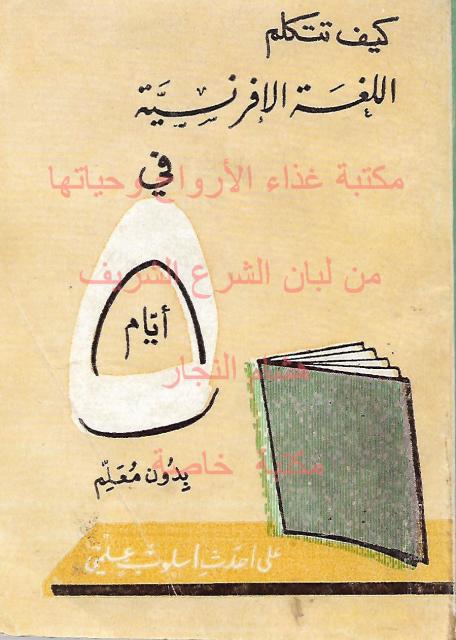 كيف تتكلم
اللغة الإفرنسيّة
في
مكتبة غذاء الأرواح وحياتها
من لبان الشرع الشريف
٥
أيّام
هشام النجار
مكتبة خاصة
بِدُون مُعَلِّم
على أحدَث أسلوب علمي